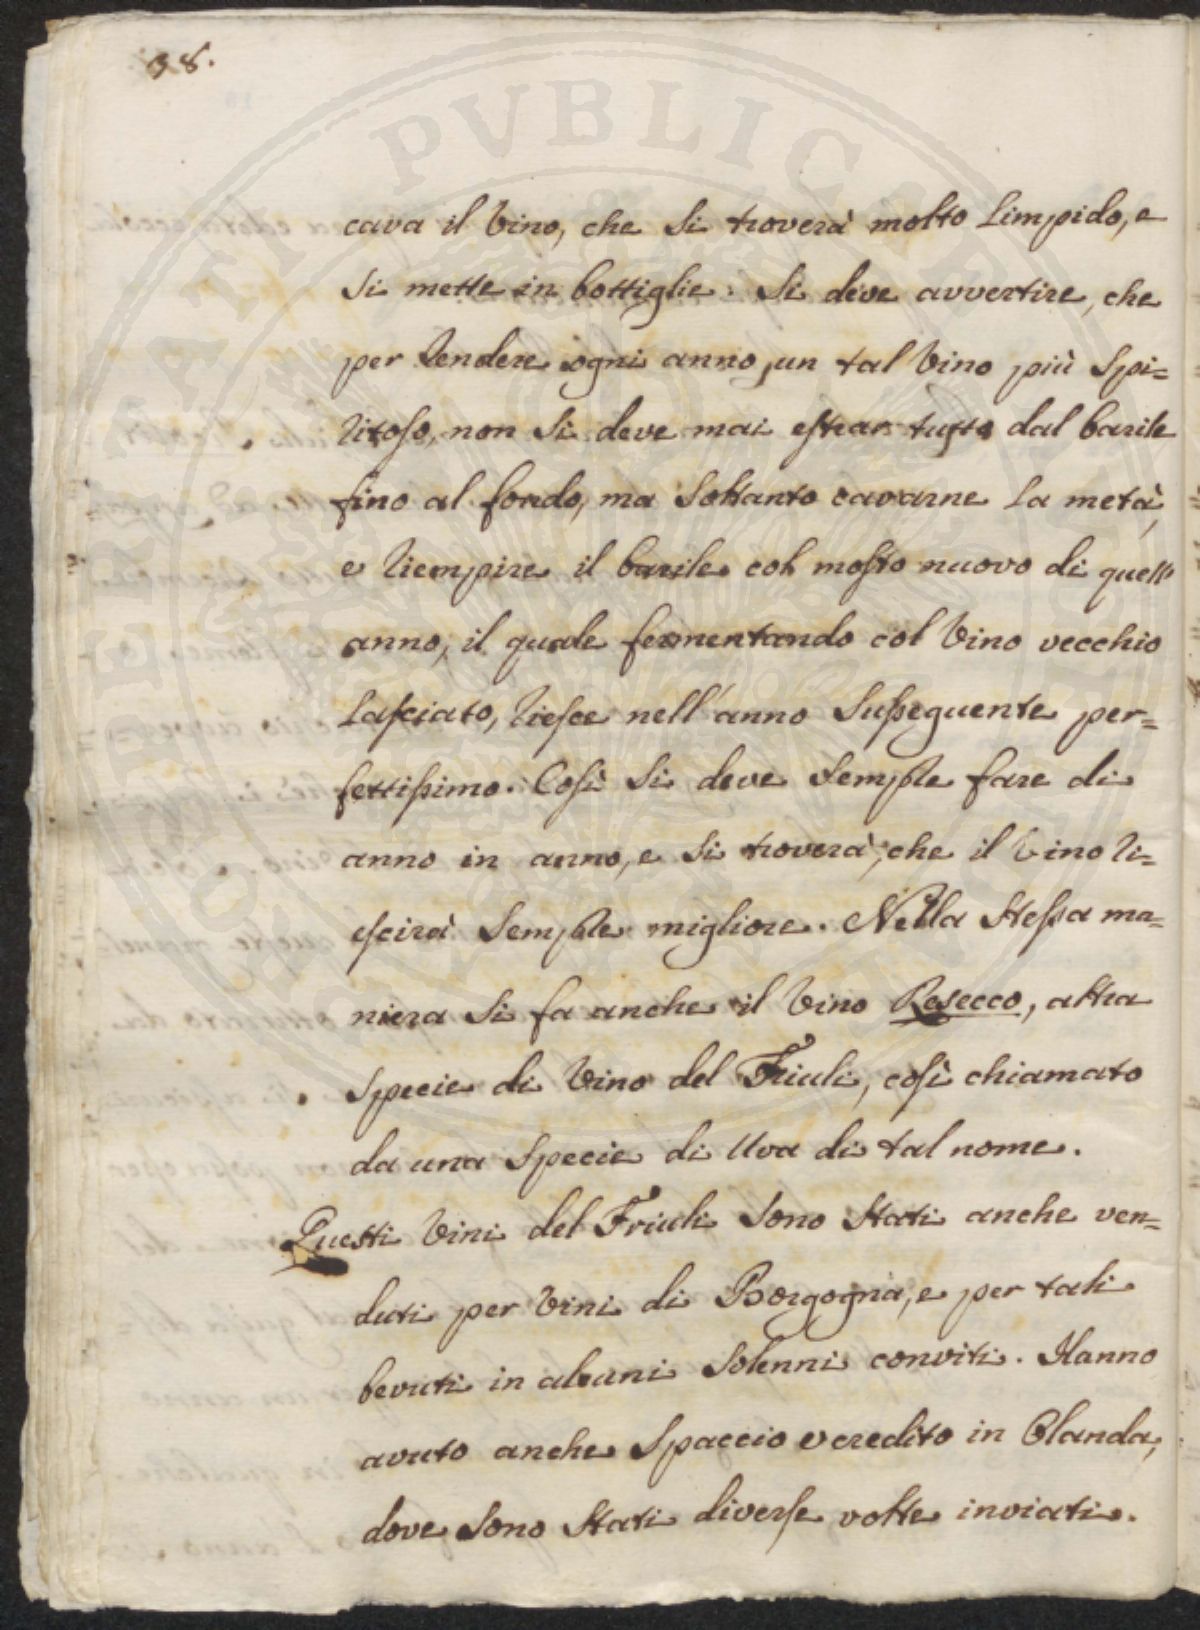 38.
cava il Vino, che si troverà molto limpido, e
si mette in bottiglie. Si deve avvertire, che
per rendere ogni anno, un tal Vino più spi=
ritoso, non si deve mai estrar tutto dal barile
fino al fondo, ma soltanto cavarne la metà,
e riempire il barile col mosto nuovo di quell'
anno, il quale fermentando col Vino vecchio
lasciato, riesce nell'anno susseguente per=
fettissimo. Così si deve sempre fare di
anno in anno, e si troverà, che il Vino ri=
escirà sempre migliore. Nella stessa ma=
niera si fa anche il Vino Resecco, altra
specie di Vino del Friuli, così chiamato
da una specie di Uva di tal nome.
Questi Vini del Friuli sono stati anche ven=
duti per Vini di Borgogna, e per tali
bevuti in alcuni solenni conviti. Hanno
avuto anche spaccio e credito in Olanda,
dove sono stati diverse volte inviati.